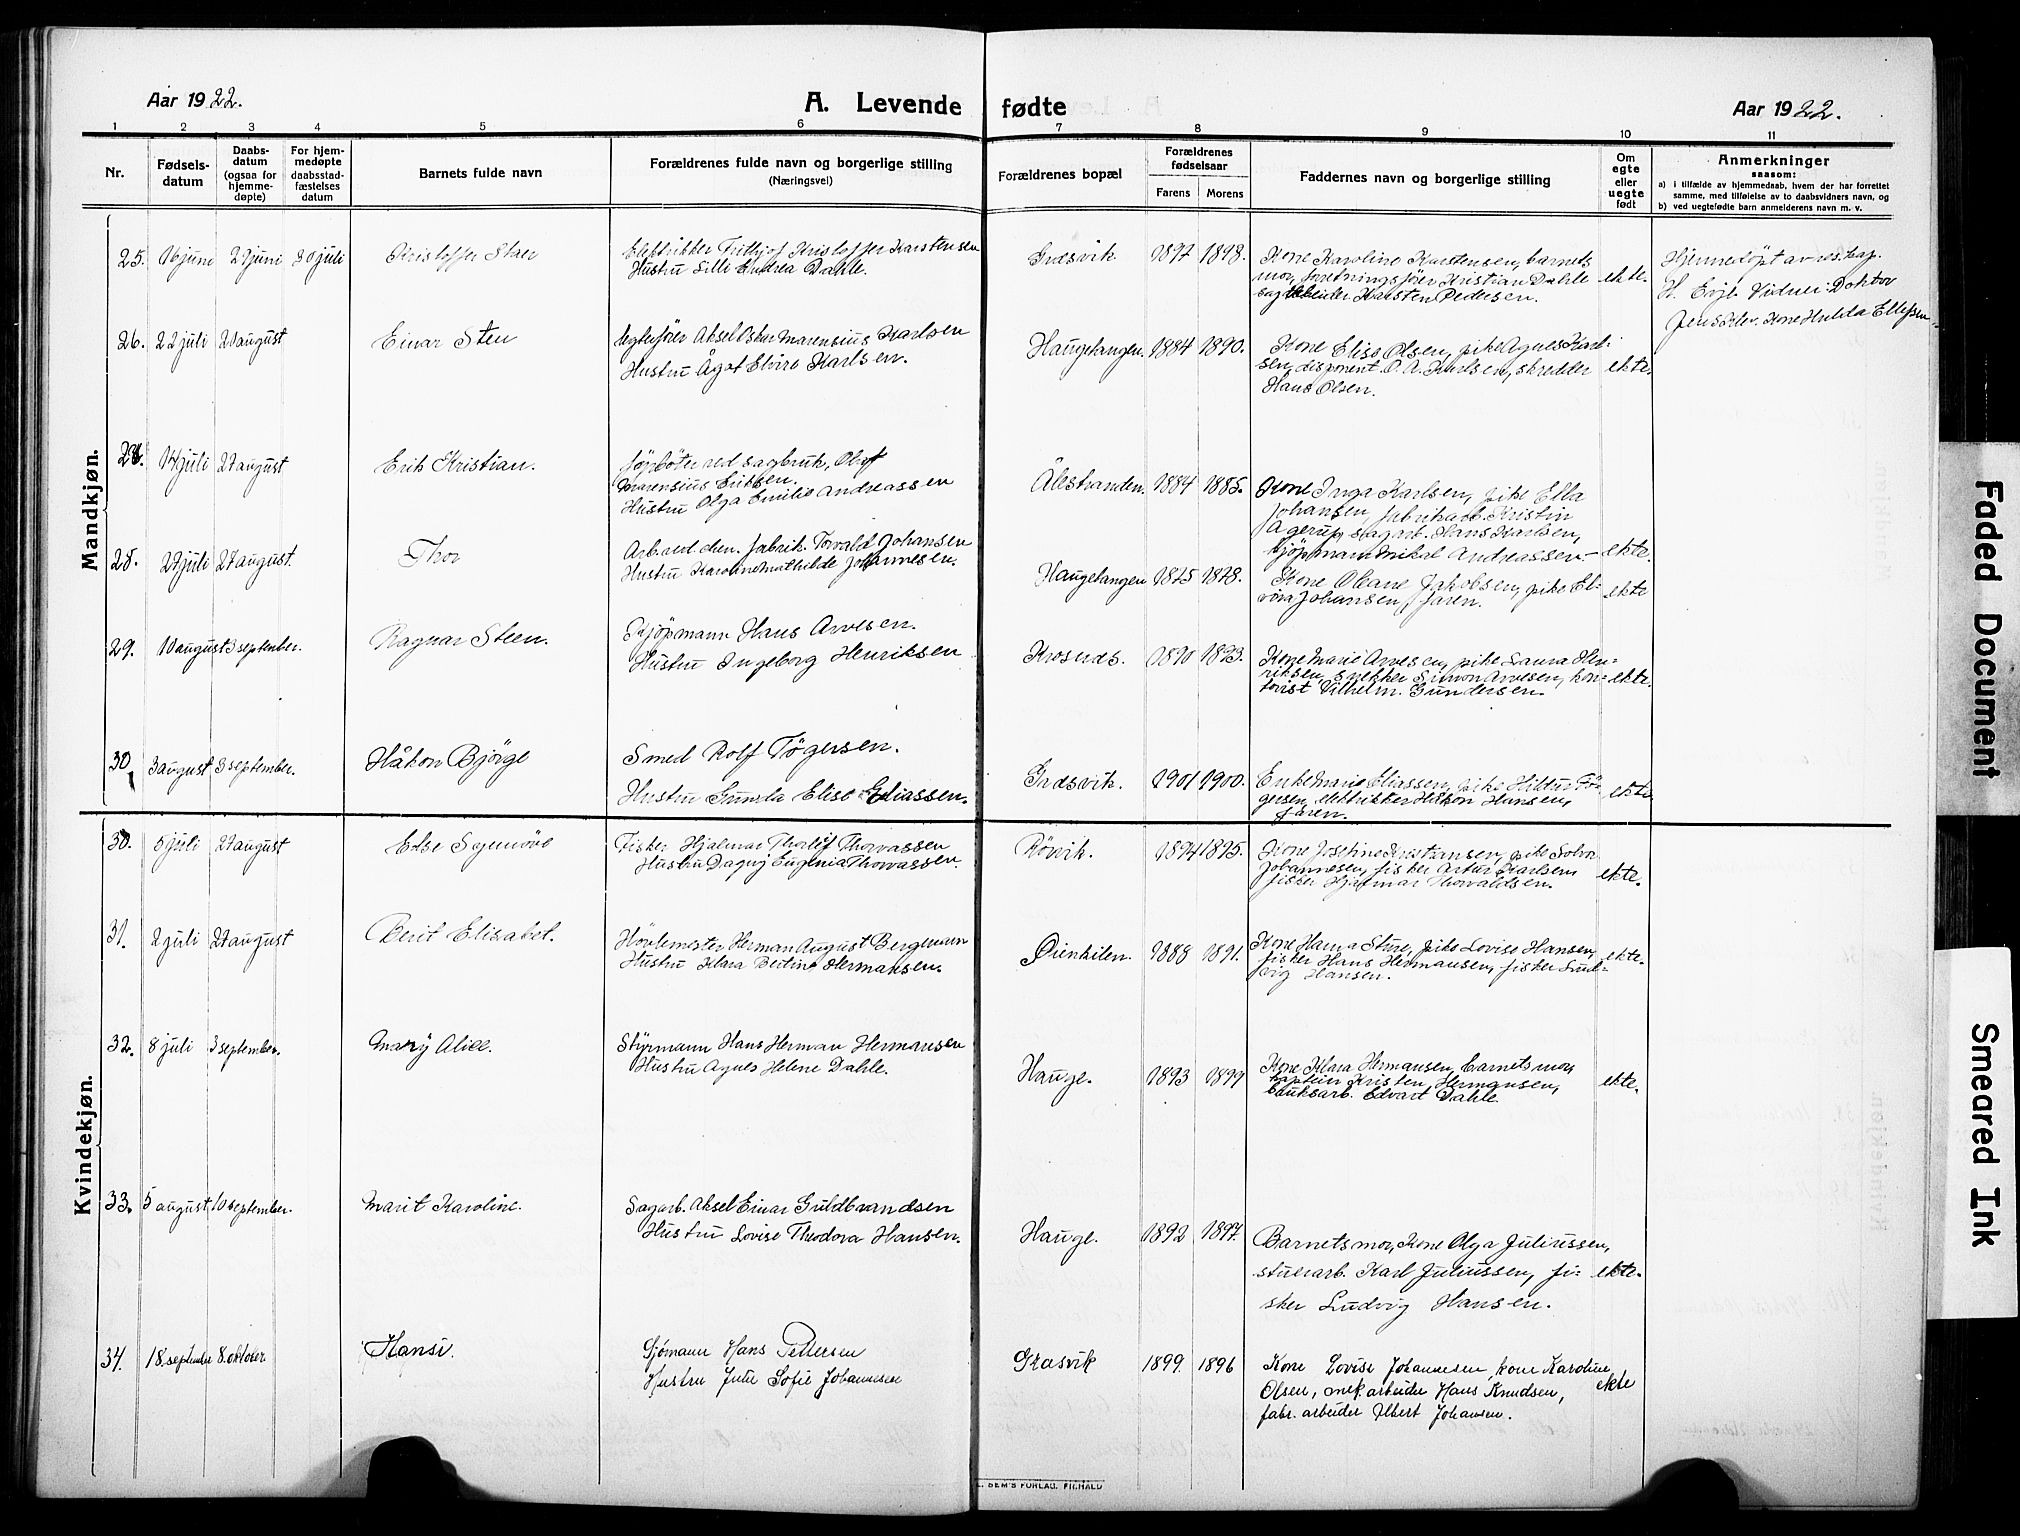 Aar 1922.
A. Levende fødte
Aar 1922.
1 2 3 4 5 6 7 8 9 10 11
Nr.
Fødsels-
datum
Daabs-
datum
(ogsaa for
hjemme-
døpte)
For hjem-
medøpte
daabsstad-
fæstelses
datum
Barnets fulde navn
Forældrenes fulde navn og borgerlige stilling
(Næringsvei)
Forældrenes bopæl
Forældrenes
fødselsaar
Farens Morens
Faddernes navn og borgerlige stilling
Om
egte
eller
uegte
født
Anmerkninger
saasom:
a) i tilfælde av hjemmedaab, hvem der har forrettet
samme, med tilføielse av to daabsvidners navn, og
b) ved uegtefødte barn anmelderens navn m. v.
Mandkjøn.
25. 16 juni 29 juni 30 juli Kristoffer
Elektrikker Frithjof Kristoffer Karstensen
Hustru Silli Endrea Dahle.
Græsvik 1897 1898.
Kone Karoline Karstensen, barnets
mor, forretningsfører Kristian Dahle
sagarbeider Karsten Pedersen.
ekte.
Hjemmedøpt av res. kap.
H. Vidner: Doktor
Kone Hulda Ellefsen
26. 22 juli 20 august Einar Sten
Aksel Oskar Marensius Karlsen
Hustru Ågot Elvire Karlsen.
Haugetangen. 1884 1890.
Kone Elise Olsen, pike Agnes Karl-
sen, disponent O. A. Karlsen, skredder
Hans Olsen.
ekte.
14 juli 27 august Erik Kristian.
ved sagbruk, Olaf
Marensius Eriksen.
Hustru Olga Emilie Andreassen
Ålestranden. 1884 1885.
Kone Inga Karlsen, pike Ella
Johansen, fabrikarb. Kristin
Agerup, sagarb. Hans Karlsen,
kjöpmann Mikal Andreassen -
ekte.
28. 27 juli 27 august. Thor
Arb. ved chem. fabrik. Torvald Johansen
Hustru Karoline Mathilde Johannesen.
Haugetangen 1895 1898.
Kone Oleane Jakobsen, pike El-
vira Johansen, faren.
ekte
29. 10 august 3 september. Ragnar Steen.
Kjöpmann Hans Arvesen.
Hustru Ingeborg Henriksen
Krosnæs. 1890 1893.
Kone Marie Arvesen, pike Laura Hen-
riksen, snekker Simon Arvesen, kon-
torist Vilhelm Gundersen.
ekte.
30. 3 august 3 september. Håkon Bjórge
Smed Rolf Tögersen.
Hustru Gunda Elise Eliassen.
Græsvik. 1901 1900.
Enke Marie Eliassen, pike Hildur Tö-
gersen, elektrikker Håkon Hansen,
faren.
ekte
Kvindekjøn.
30. 5 juli 27 august Else Synnöve
Fisker Hjalmar Thorleif Thorvassen
Hustru Dagny Eugenia Thorvassen.
Rörvik. 1894 1895.
Kone Josefine Kristiansen, pike Solva
Johannesen, fisker Artur Karlsen
fisker Hjalmar Thorvaldsen.
ekte.
31. 2 juli 27 august Berit Elisabet.
Hövlemester Herman August Bergmann
Hustru Klara Bertine Hermansen.
Øienkilen. 1888 1891.
Kone Hanna Stene, pike Lovise Hansen,
fisker Hans Hermansen, fisker Lud-
vig Hansen.
ekte.
32. 8 juli 3 september. Mary Alice.
Styrmann Hans Herman Hermansen
Hustru Agnes Helene Dahle.
Hauge. 1893 1899
Kone Klara Hermansen, barnets mor,
kaptein Kristen Hermansen,
bruksarb. Edvart Dahle.
ekte.
33. 5 august 10 september. Marit Karoline.
Sagarb. Aksel Einar Guldbrandsen
Hustru Lovise Theodora Hansen.
Hauge. 1892 1897.
Barnets mor, Kone Olga Juliussen,
stuerarb. Karl Juliussen, fi-
sker Ludvig Hansen.
ekte.
34. 18. september 8. oktober Hansi.
Sjømann Hans Pettersen
Hustru Julie Sofie Johannesen
Græsvik 1899 1896
Kone Lovise Johannesen, kone Karoline
Olsen, mek. arbeider Hans Knudsen,
fabr. arbeider Albert Johansen.
ekte
BEM'S FORLAG, FR.HALD
Faded Document
Smeared Ink